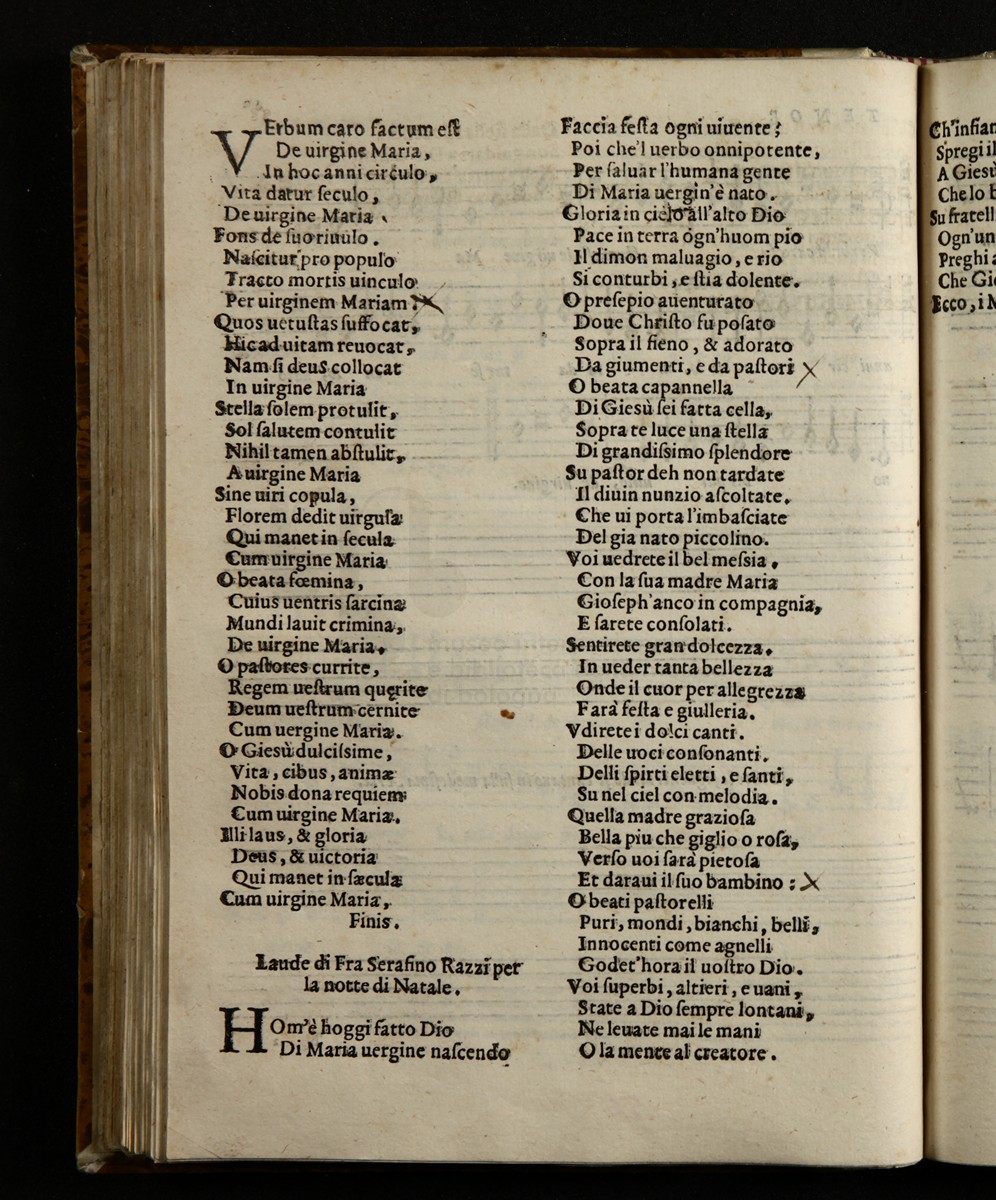 VErbum caro factum est
De uirgine Maria,
In hoc anni circulo,
Vita datur seculo,
De uirgine Maria
Fons de suo riuulo.
Nascitur pro populo
Tracto mortis uinculo
Per uirginem Mariam
Quos uetustas suffocat,
Hic ad uitam reuocat,
Nam si deus collocat
In uirgine Maria
Stella solem protulit,
Sol salutem contulit
Nihil tamen abstulit,
A uirgine Maria
Sine uiri copula,
Florem dedit uirgula
Qui manet in secula
Cum uirgine Maria
O beata fœmina,
Cuius uentris sarcina
Mundi lauit crimina,
De uirgine Maria,
O pastores currite,
Regem uestrum quęrite
Deum uestrum cernite
Cum uergine Maria.
O Giesù dulcissime,
Vita, cibus, animæ
Nobis dona requiem
Cum uirgine Maria.
Illi laus, & gloria
Deus, & uictoria
Qui manet in sæcula
Cum uirgine Maria,
Finis.
Laude di Fra Serafino Razzi per
la notte di Natale.
HOm'è hoggi fatto Dio
Di Maria uergine nascendo
Faccia festa ogni uiuente;
Poi che'l uerbo onnipotente,
Per saluar l'humana gente
Di Maria uergin'è nato.
Gloria in cielo all'alto Dio
Pace in terra ogn'huom pio
Il dimon maluagio, e rio
Si conturbi, e stia dolente.
O presepio auenturato
Doue Christo fu posato
Sopra il fieno, & adorato
Da giumenti, e da pastori
O beata capannella
Di Giesù sei fatta cella,
Sopra te luce una stella
Di grandissimo splendore
Su pastor deh non tardate
Il diuin nunzio ascoltate.
Che ui porta l'imbasciate
Del gia nato piccolino.
Voi uedrete il bel messia,
Con la sua madre Maria
Gioseph'anco in compagnia,
E sarete consolati.
Sentirete gran dolcezza,
In ueder tanta bellezza
Onde il cuor per allegrezza
Farà festa e giulleria.
Vdirete i dolci canti.
Delle uoci consonanti.
Delli spirti eletti, e santi,
Su nel ciel con melodia.
Quella madre graziosa
Bella piu che giglio o rosa,
Verso uoi sarà pietosa
Et daraui il suo bambino:
O beati pastorelli
Puri, mondi, bianchi, belli,
Innocenti come agnelli
Godet'hora il uostro Dio.
Voi superbi, altieri, e uani,
State a Dio sempre lontani,
Ne leuate mai le mani
O la mente al creatore.
Spregi il
A Giesù
Che lo
Su fratell
Ogn'un
Preghi
Che Gi
Ecco, i